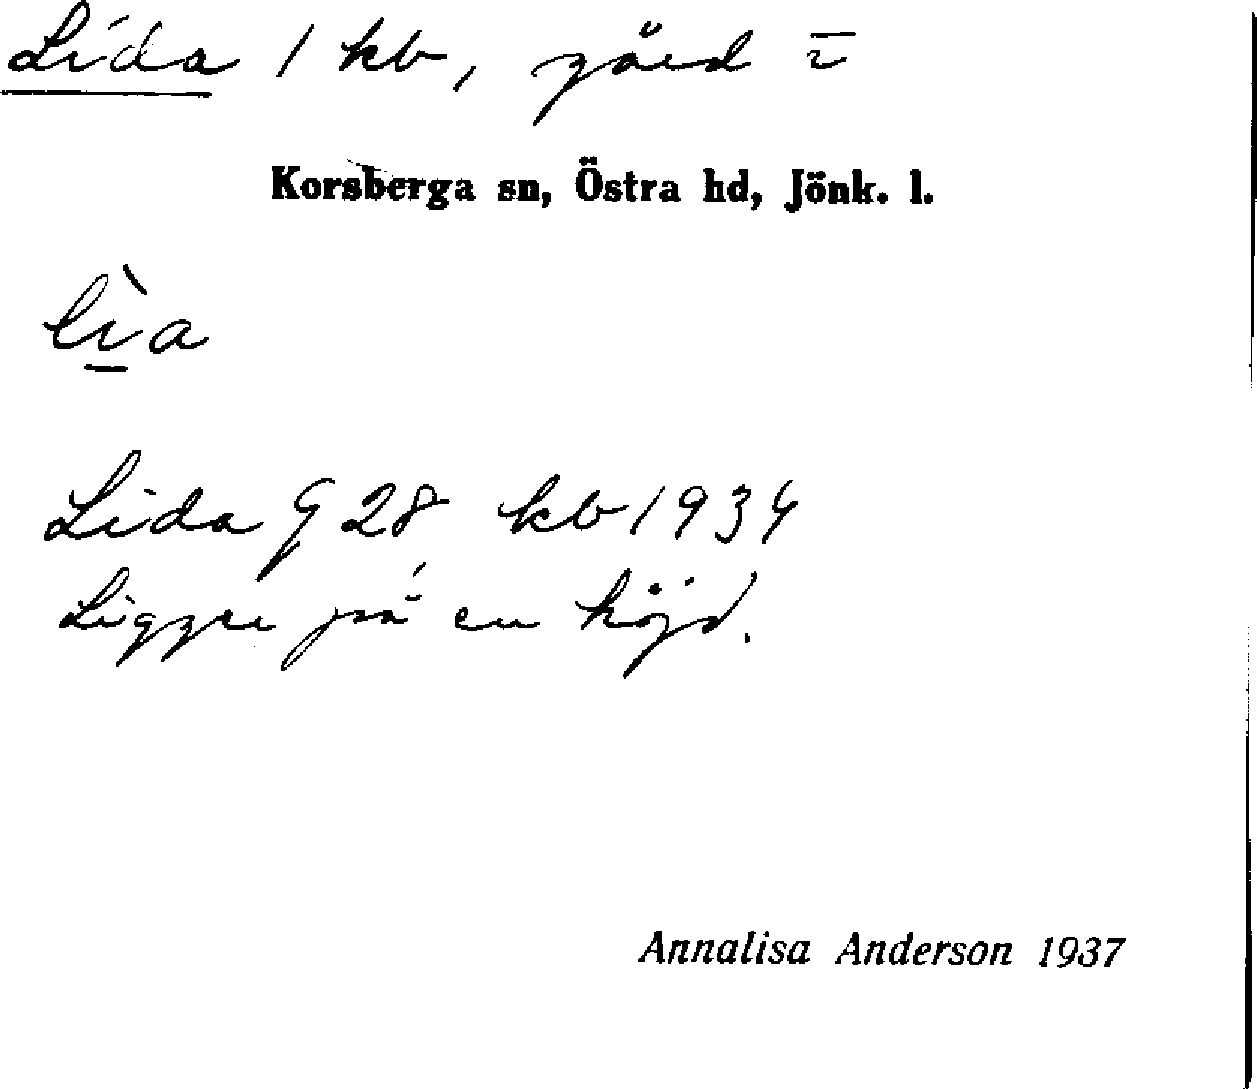 Lida 1 kb, gård i
Korsberga sn, Östra hd, Jönk. l.
lìa
Lida G 28 kb 1934
Ligger på en höjd.
Annalisa Anderson 1937